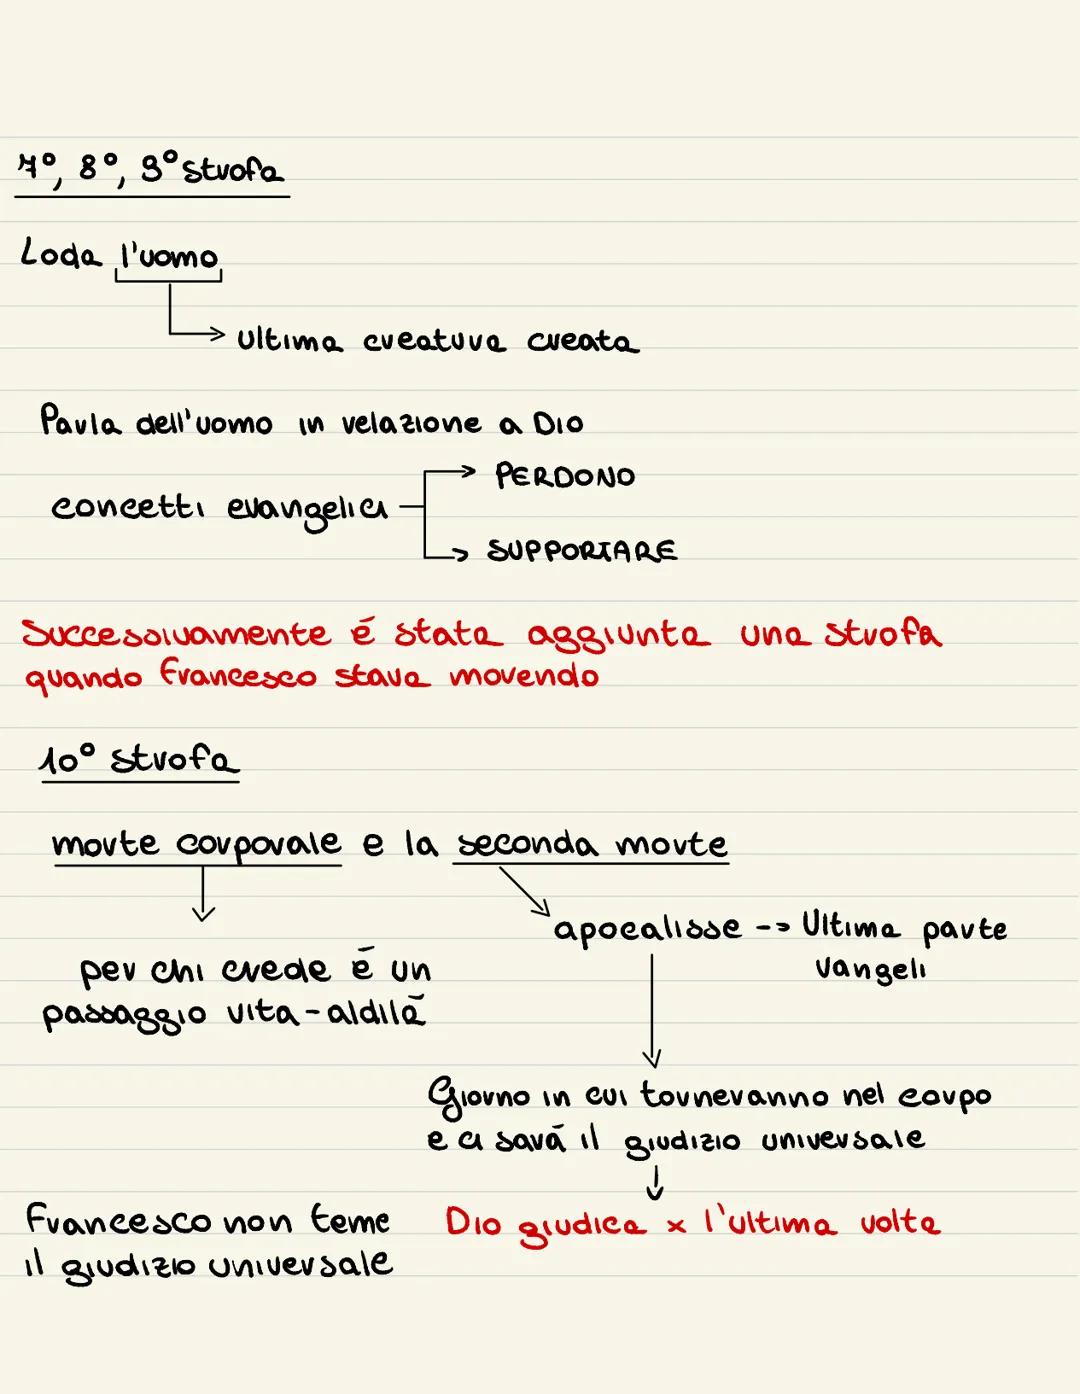 7°, 8°, 9° strofa
Loda l'uomo
Ultima creatura creata
Parla dell'uomo in relazione a Dio
PERDONO
concetti evangelici
SUPPORTARE
Successivamente é stata aggiunta una strofa
quando Francesco stava morendo
10° strofa
morte corporale e la seconda morte
apocalisse --> Ultima parte
vangeli
per chi crede é un
passaggio vita-aldilá
Giorno in cui torneranno nel corpo
e ci sará il giudizio universale
Francesco non teme
il giudizio universale
Dio giudica x l'ultima volta